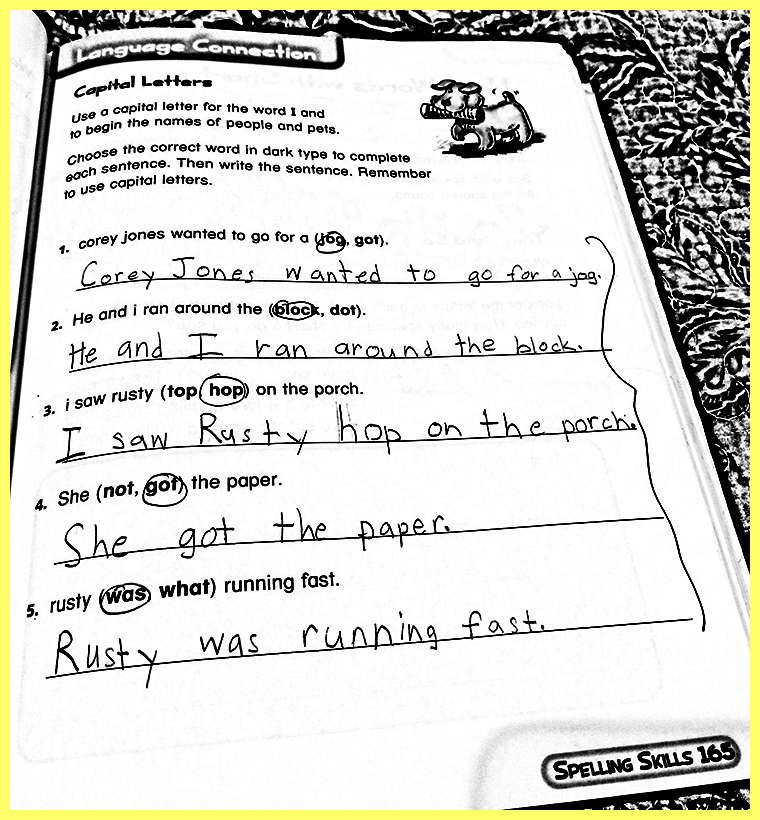 Language Connection
Capital Letters
Use a capital letter for the word I and
to begin the names of people and pets.
Choose the correct word in dark type to complete
each sentence. Then write the sentence. Remember
to use capital letters.
1. corey jones wanted to go for a (jog, got).
Corey Jones wanted to go for a jog.
2. He and i ran around the (block, dot).
He and I ran around the block.
3. i saw rusty (top, hop) on the porch.
I saw Rusty hop on the porch.
4. She (not, got) the paper.
She got the paper.
5. rusty (was, what) running fast.
Rusty was running fast.
Spelling Skills 165